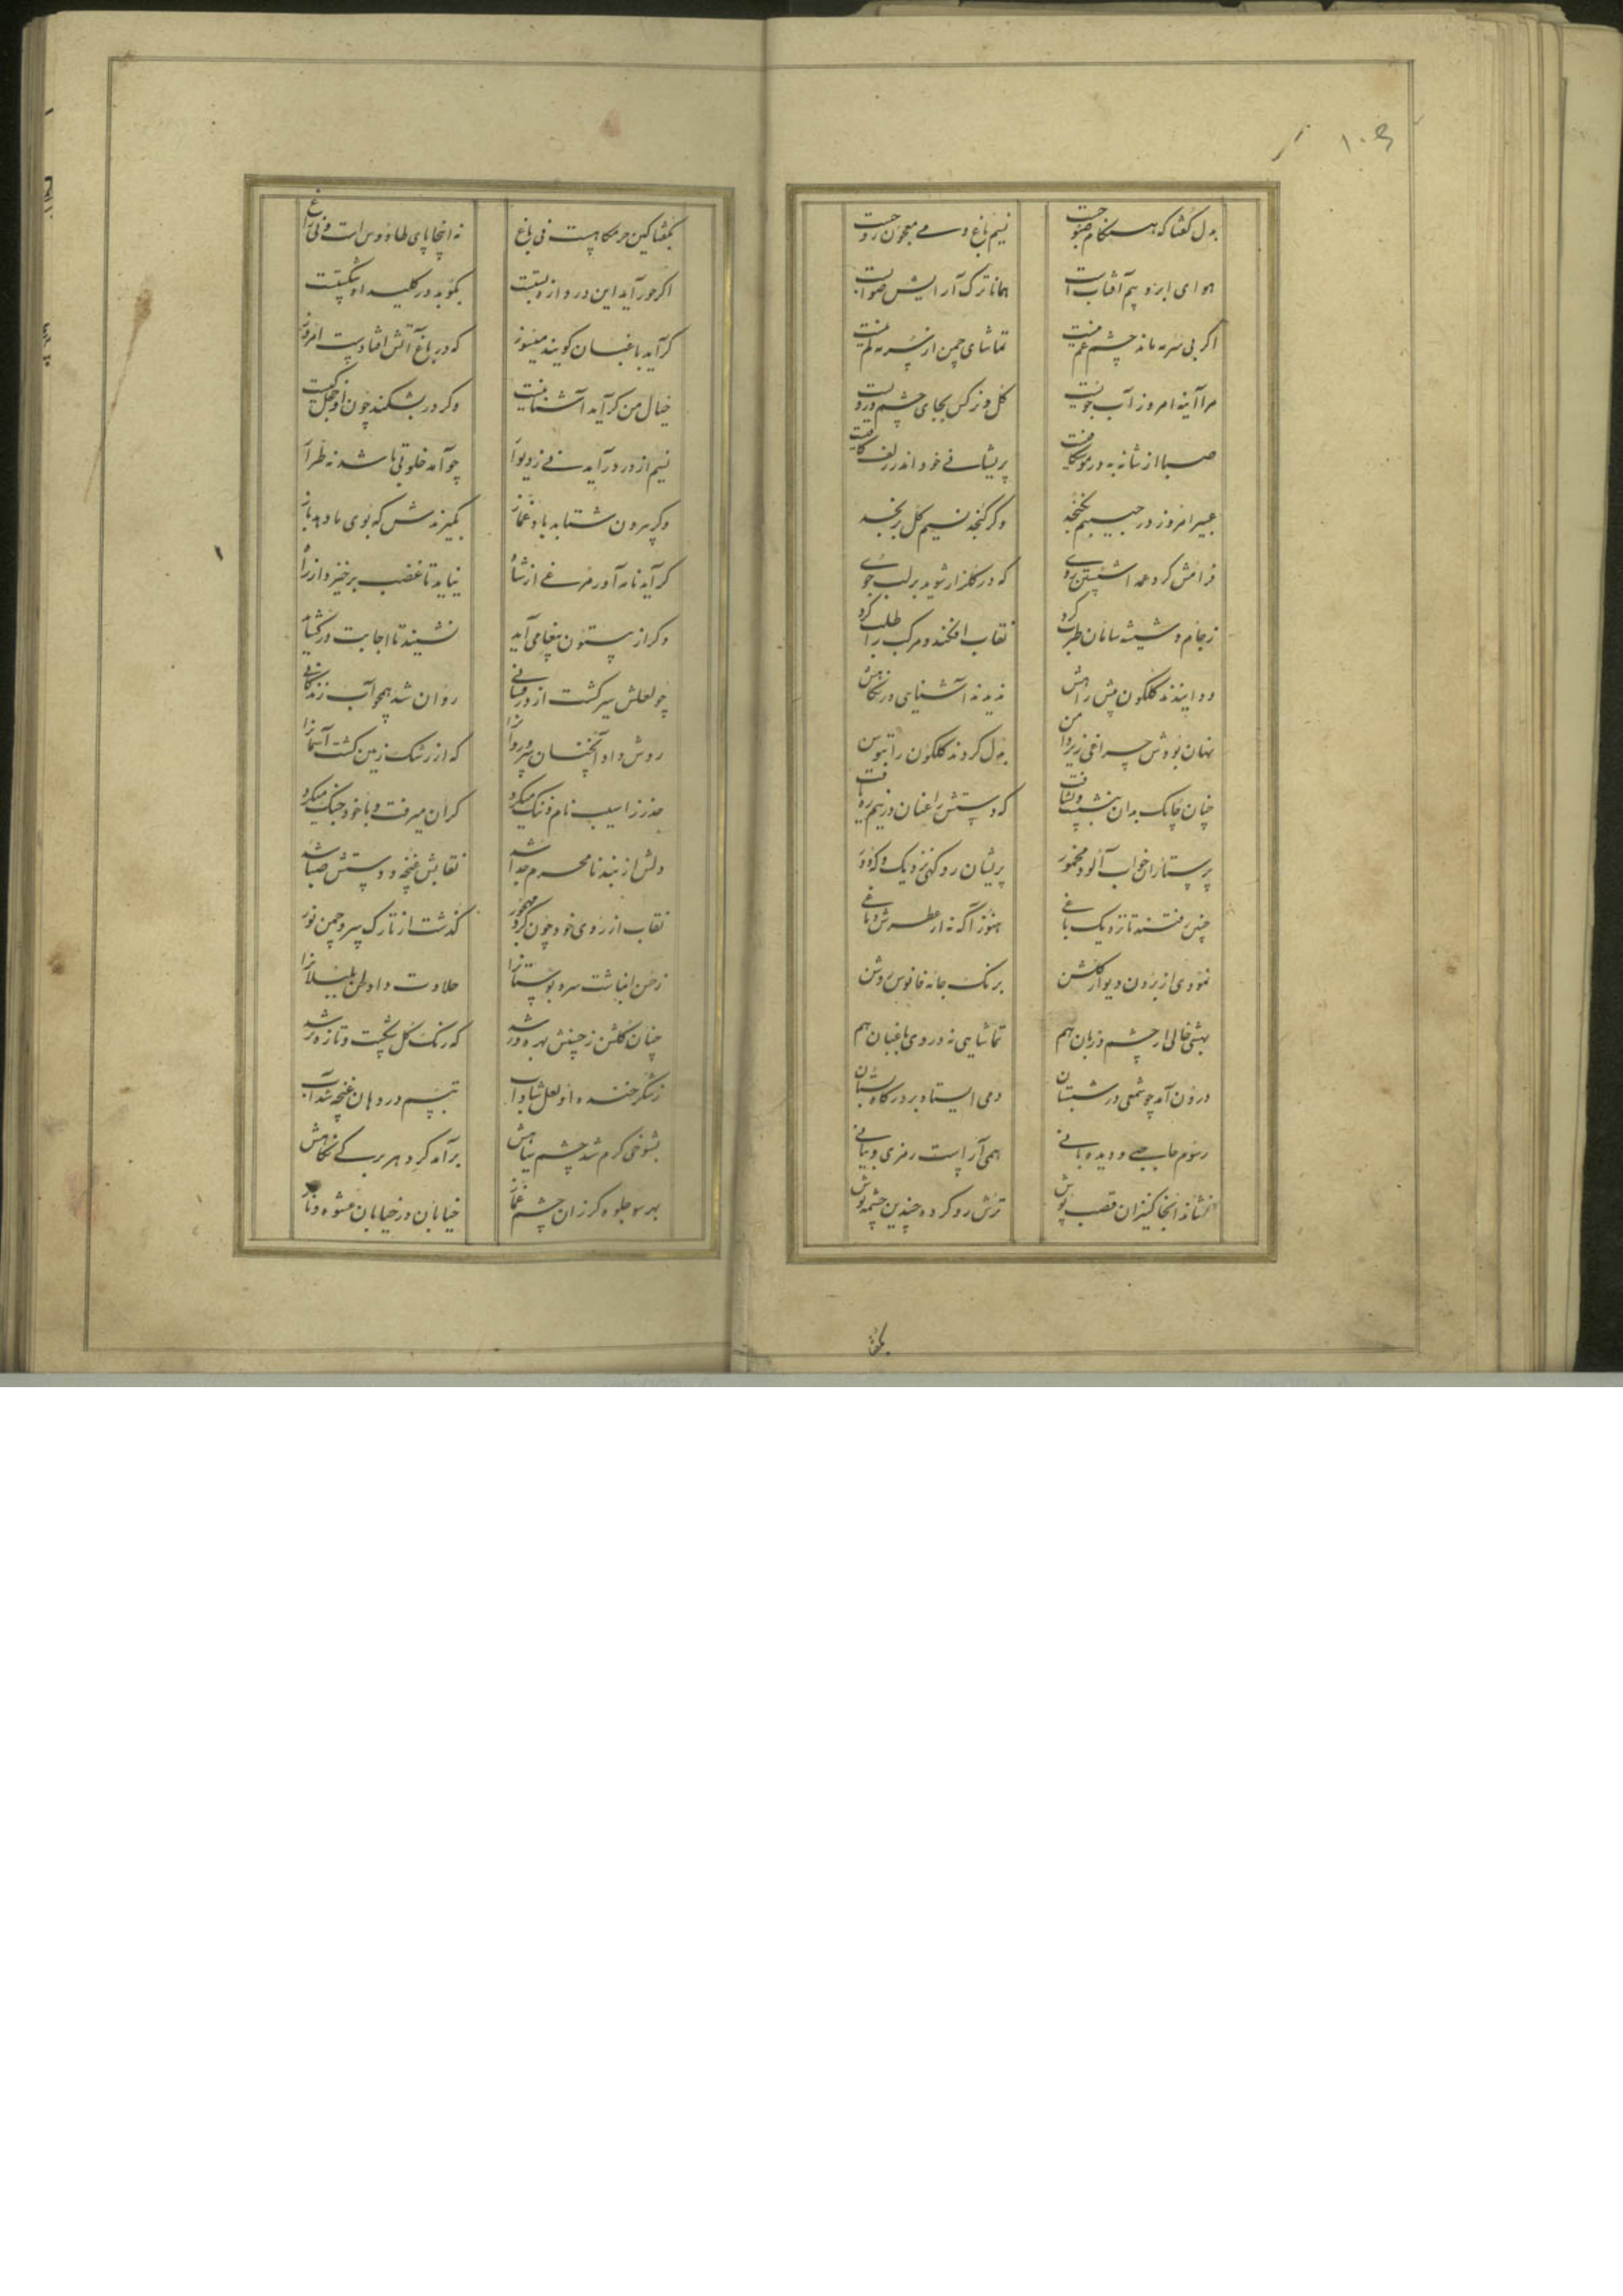 ۱۰۹
بدل گفتا که هنگام صبوحت نسیم باغ و می معجون روحت
هوای ابر و بیم آفتاب است همانا ترک آرایش صوابست
اگر بی سرمه ماند چشم غم نیست تماشای چمن از سرمه کم نیست
مرا آینه امروز آب جویست گل و نرگس بجای چشم و رویست
صبا از شانه به در موشکافیست پریشانی خود اندر زلف کافیست
عبیر امروز در جیبم نگنجد وگر گنجد نسیم گل برنجد
فرامش کرد عمدا شستن روی که در گلزار شوید بر لب جوی
ز جام و شیشه سامان طرب کرد نقاب افکند و مرکب را طلب کرد
دوانیدند گلگون پیش راهش ندیدند آشنای در نگاهش
نهان بودش چراغی زیر دامن بدل کردند گلگون را بتوسن
چنان چابک بدان بنشست و بشتافت که دستش را عنان در نیم ره یافت
پرستاران خواب آلود مخمور پریشان رو گهی نزدیک و گه دور
چنین رفتند تا نزدیک باغی هنوز آگه نه از عطرش دماغی
نمودی از برون دیوار گلشن برنگ جامه فانوس روشن
بهشتی خالی از چشم و زبان هم تماشایی نه در وی باغبان هم
درون آمد چو شمعی در شبستان دمی استاد بر درگاه بستان
رسوم حاجبی و دیده بانی همی آراست رمزی و بیانی
نشاند آنجا کنیزان قصب پوش ترش رو کرده چندین چشمه نوش
بگفتا
بگفتا کین حرمگاهست نی باغ نه اینجا پای طاووس است و نی زاغ
اگر حور آید این دروازه بستست بگوید در کلید او شکستست
گر آید باغبان گویند میسوز که در باغ آتش افتادست امروز
خیال من گر آید آشنا نیست وگر در بشکند چون او خجل کیست
نسیم از در درآید نی ز دیوار چو آمد خلوتی باشد نه طرار
وگر بیرون شتابد باد غماز بگیریدش که بوی ما دهد باز
گر آید نامه آور مرغی از شاه نیاید تا غضب برخیزد از راه
وگر از بیستون پیغامی آید نشیند تا اجابت در گشاید
چو لعلش سیر گشت از درفشانی روان شد همچو آب زندگانی
روش داد آنچنان سرو روانرا که از رشک زمین گشت آسمانرا
حذر ز آسیب نام و ننگ میکرد گران میرفت و با خود جنگ میکرد
دلش از بند نامحرم جدا شد نقابش غنچه و دستش صبا شد
نقاب از روی خود چون کرد مهجور گذشت از تارک سرو چمن نور
ز حسن انباشت سرو بوستانرا حلاوت داد لحن بلبلانرا
چنان گلشن ز حسنش بهره ور شد که رنگ گل بجست و تازه تر شد
ز شکر خنده او لعل شاداب تبسم در دهان غنچه شد آب
بشوخی گرم شد چشم سیاهش برآمد گرد هر برگی نگاهش
بهر سو جلوه گر زان چشم غماز خیابان در خیابان عشوه و ناز